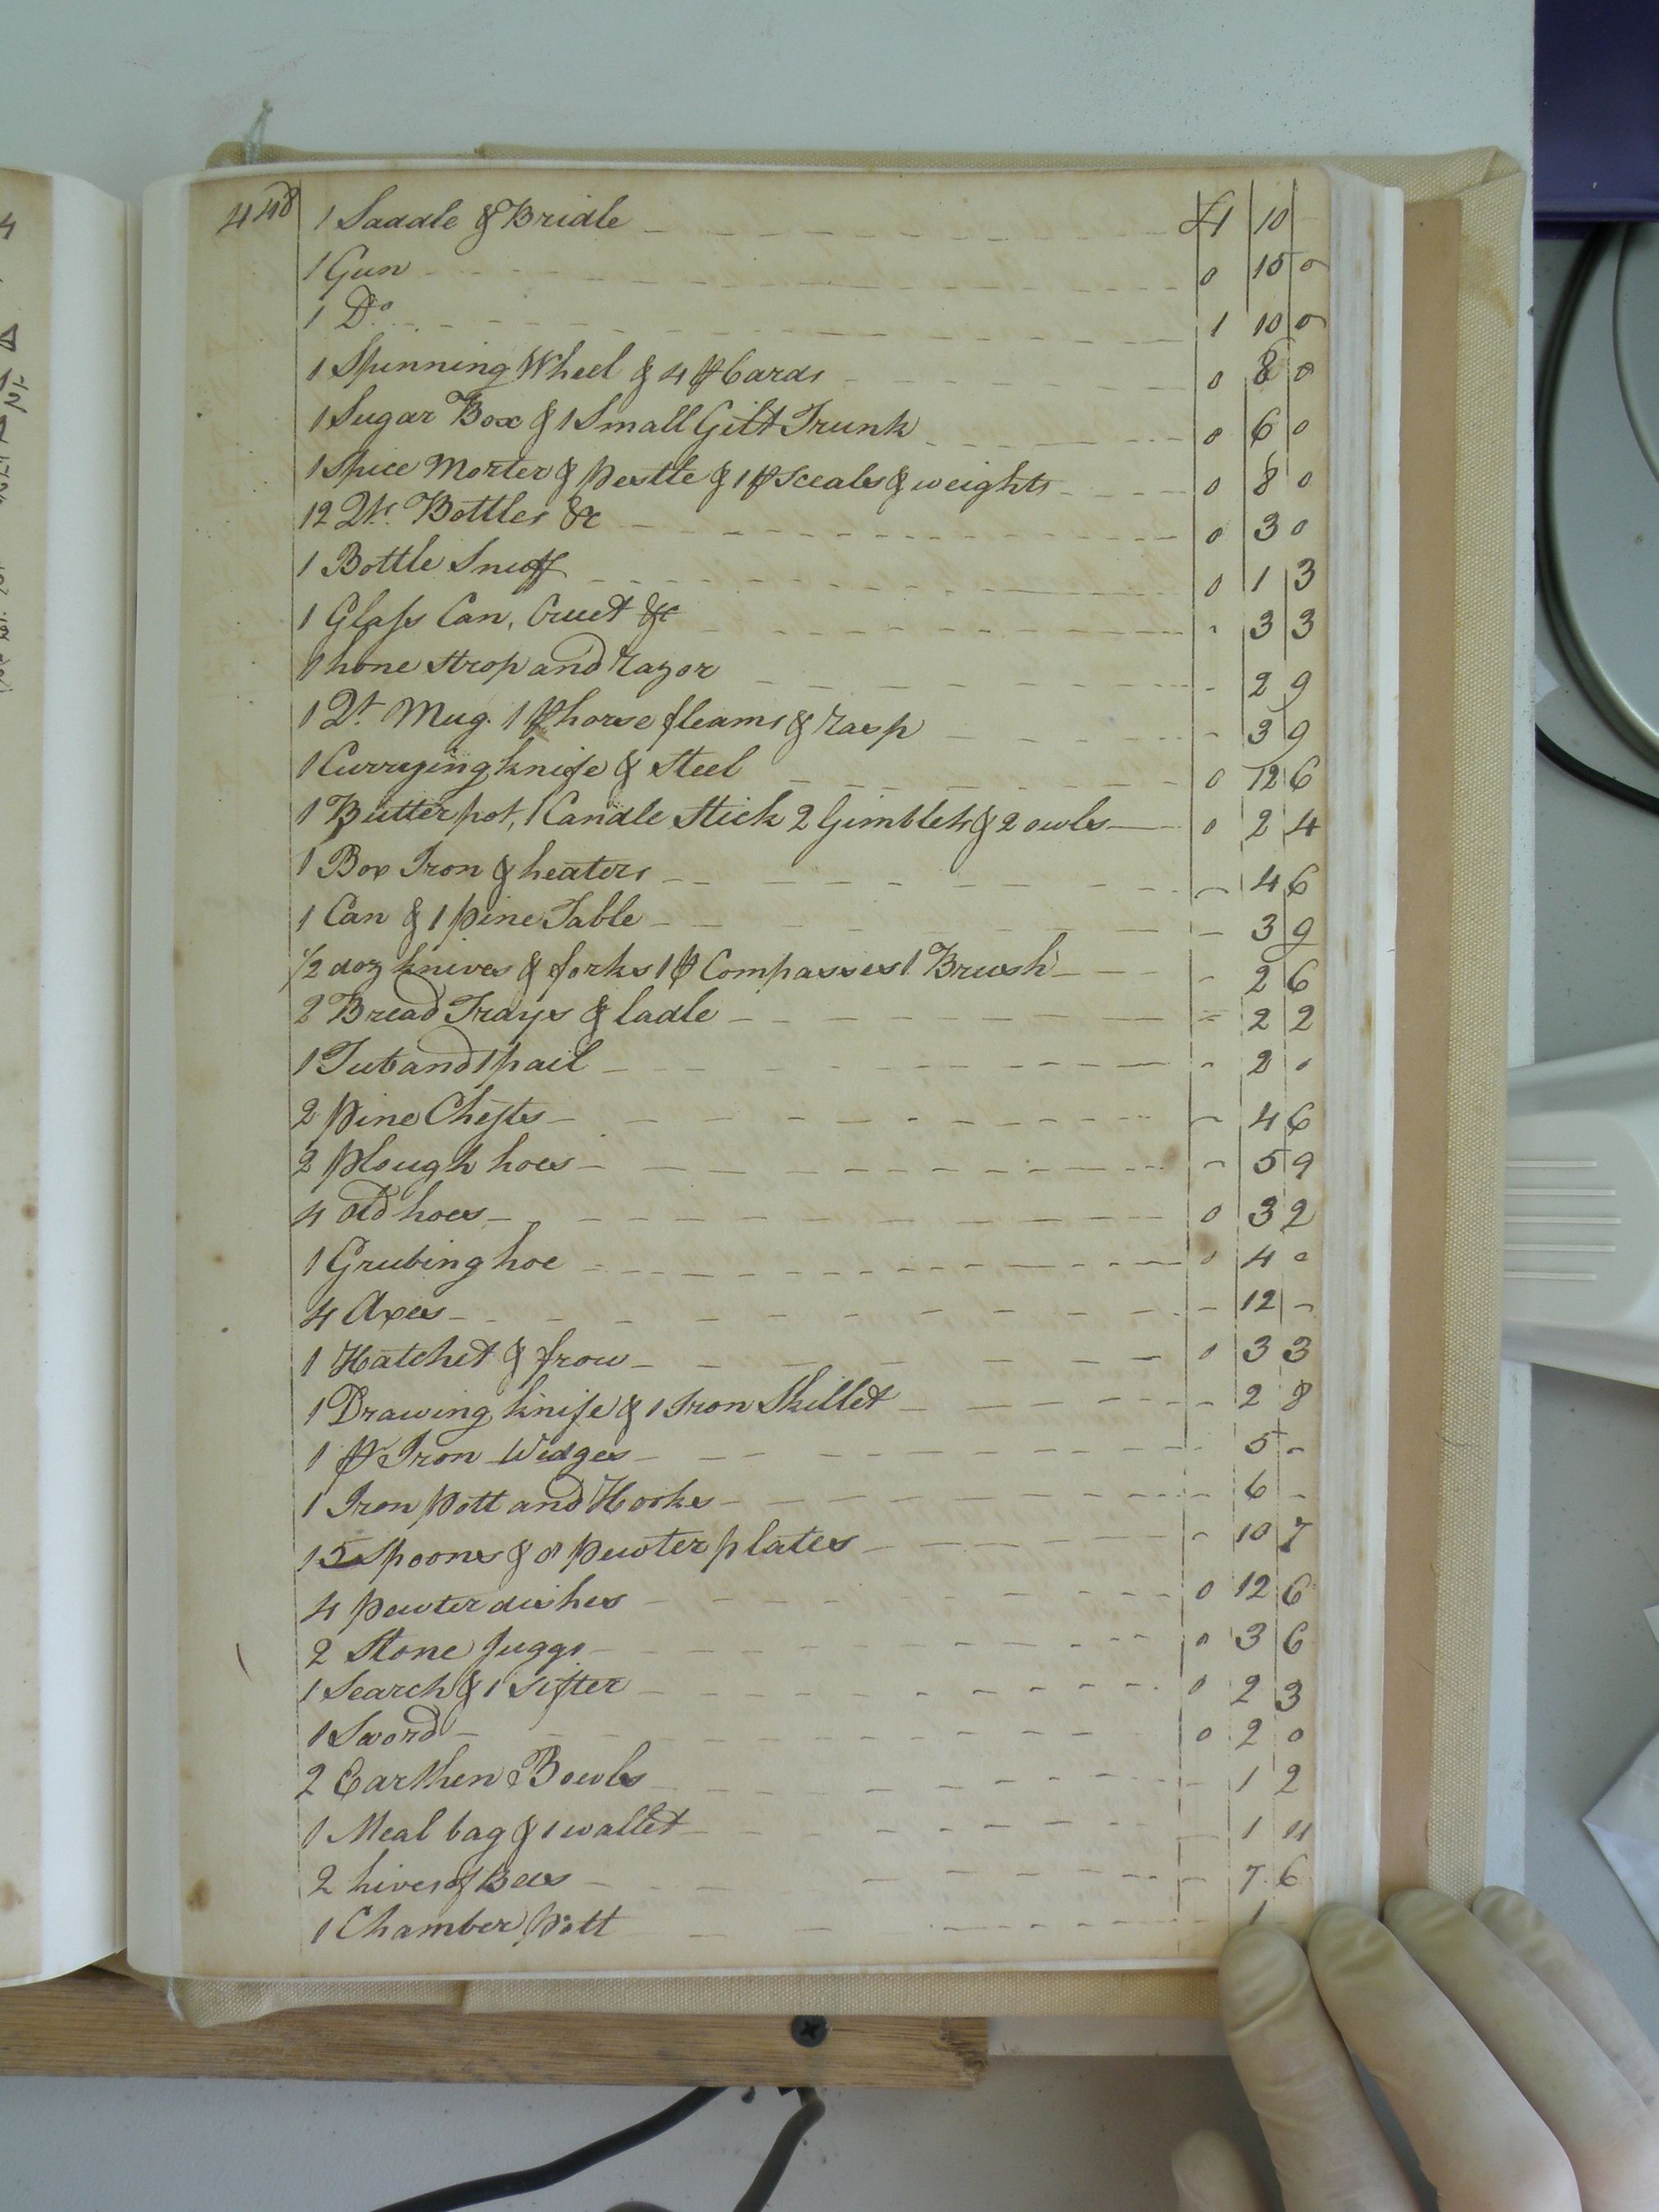 448
1 Saddle & Bridle £1 10
1 Gun 0 15 0
1 Do 1 10 0
1 Spinning Wheel & 4 pr Cards 0 8 0
1 Sugar Box & 1 Small Gilt Trunk 0 6 0
1 Spice Morter & pestle & 1 pr Sceals & weights 0 8 0
12 Qt. Bottles &c 0 3 0
1 Bottle Snuff 0 1 3
1 Glass Can, Cruet &c - 3 3
1 hone strop and razor - 2 9
1 Qt. Mug. 1 pr horse fleams & rasp - 3 9
1 Currying knife & steel 0 12 6
1 Butter pot, 1 Candle Stick 2 Gimblets & 2 owls 0 2 4
1 Box Iron & heaters - 4 6
1 Can & 1 pine Table - 3 9
1/2 doz knives & forks 1 pr Compasses 1 Brush - 2 6
2 Bread Trays & ladle - 2 2
1 Tub and 1 pail - 2 0
2 pine Chests - 4 6
2 plough hoes - 5 9
4 old hoes 0 3 2
1 Grubing hoe 0 4 0
4 Axes - 12 -
1 Hatchet & frow 0 3 3
1 Drawing knife & 1 Iron Skillet - 2 8
1 pr Iron Widges - 5 -
1 Iron pott and Hooks - 6 -
15 Spoons & 8 pewter plates - 10 7
4 pewter dishes 0 12 6
2 Stone Juggs 0 3 6
1 Search & 1 Sifter 0 2 3
1 Sword 0 2 0
2 Earthen Bowls - 1 2
1 Meal bag & 1 wallet - 1 11
2 hives of Bees - 7 6
1 Chamber pott 1